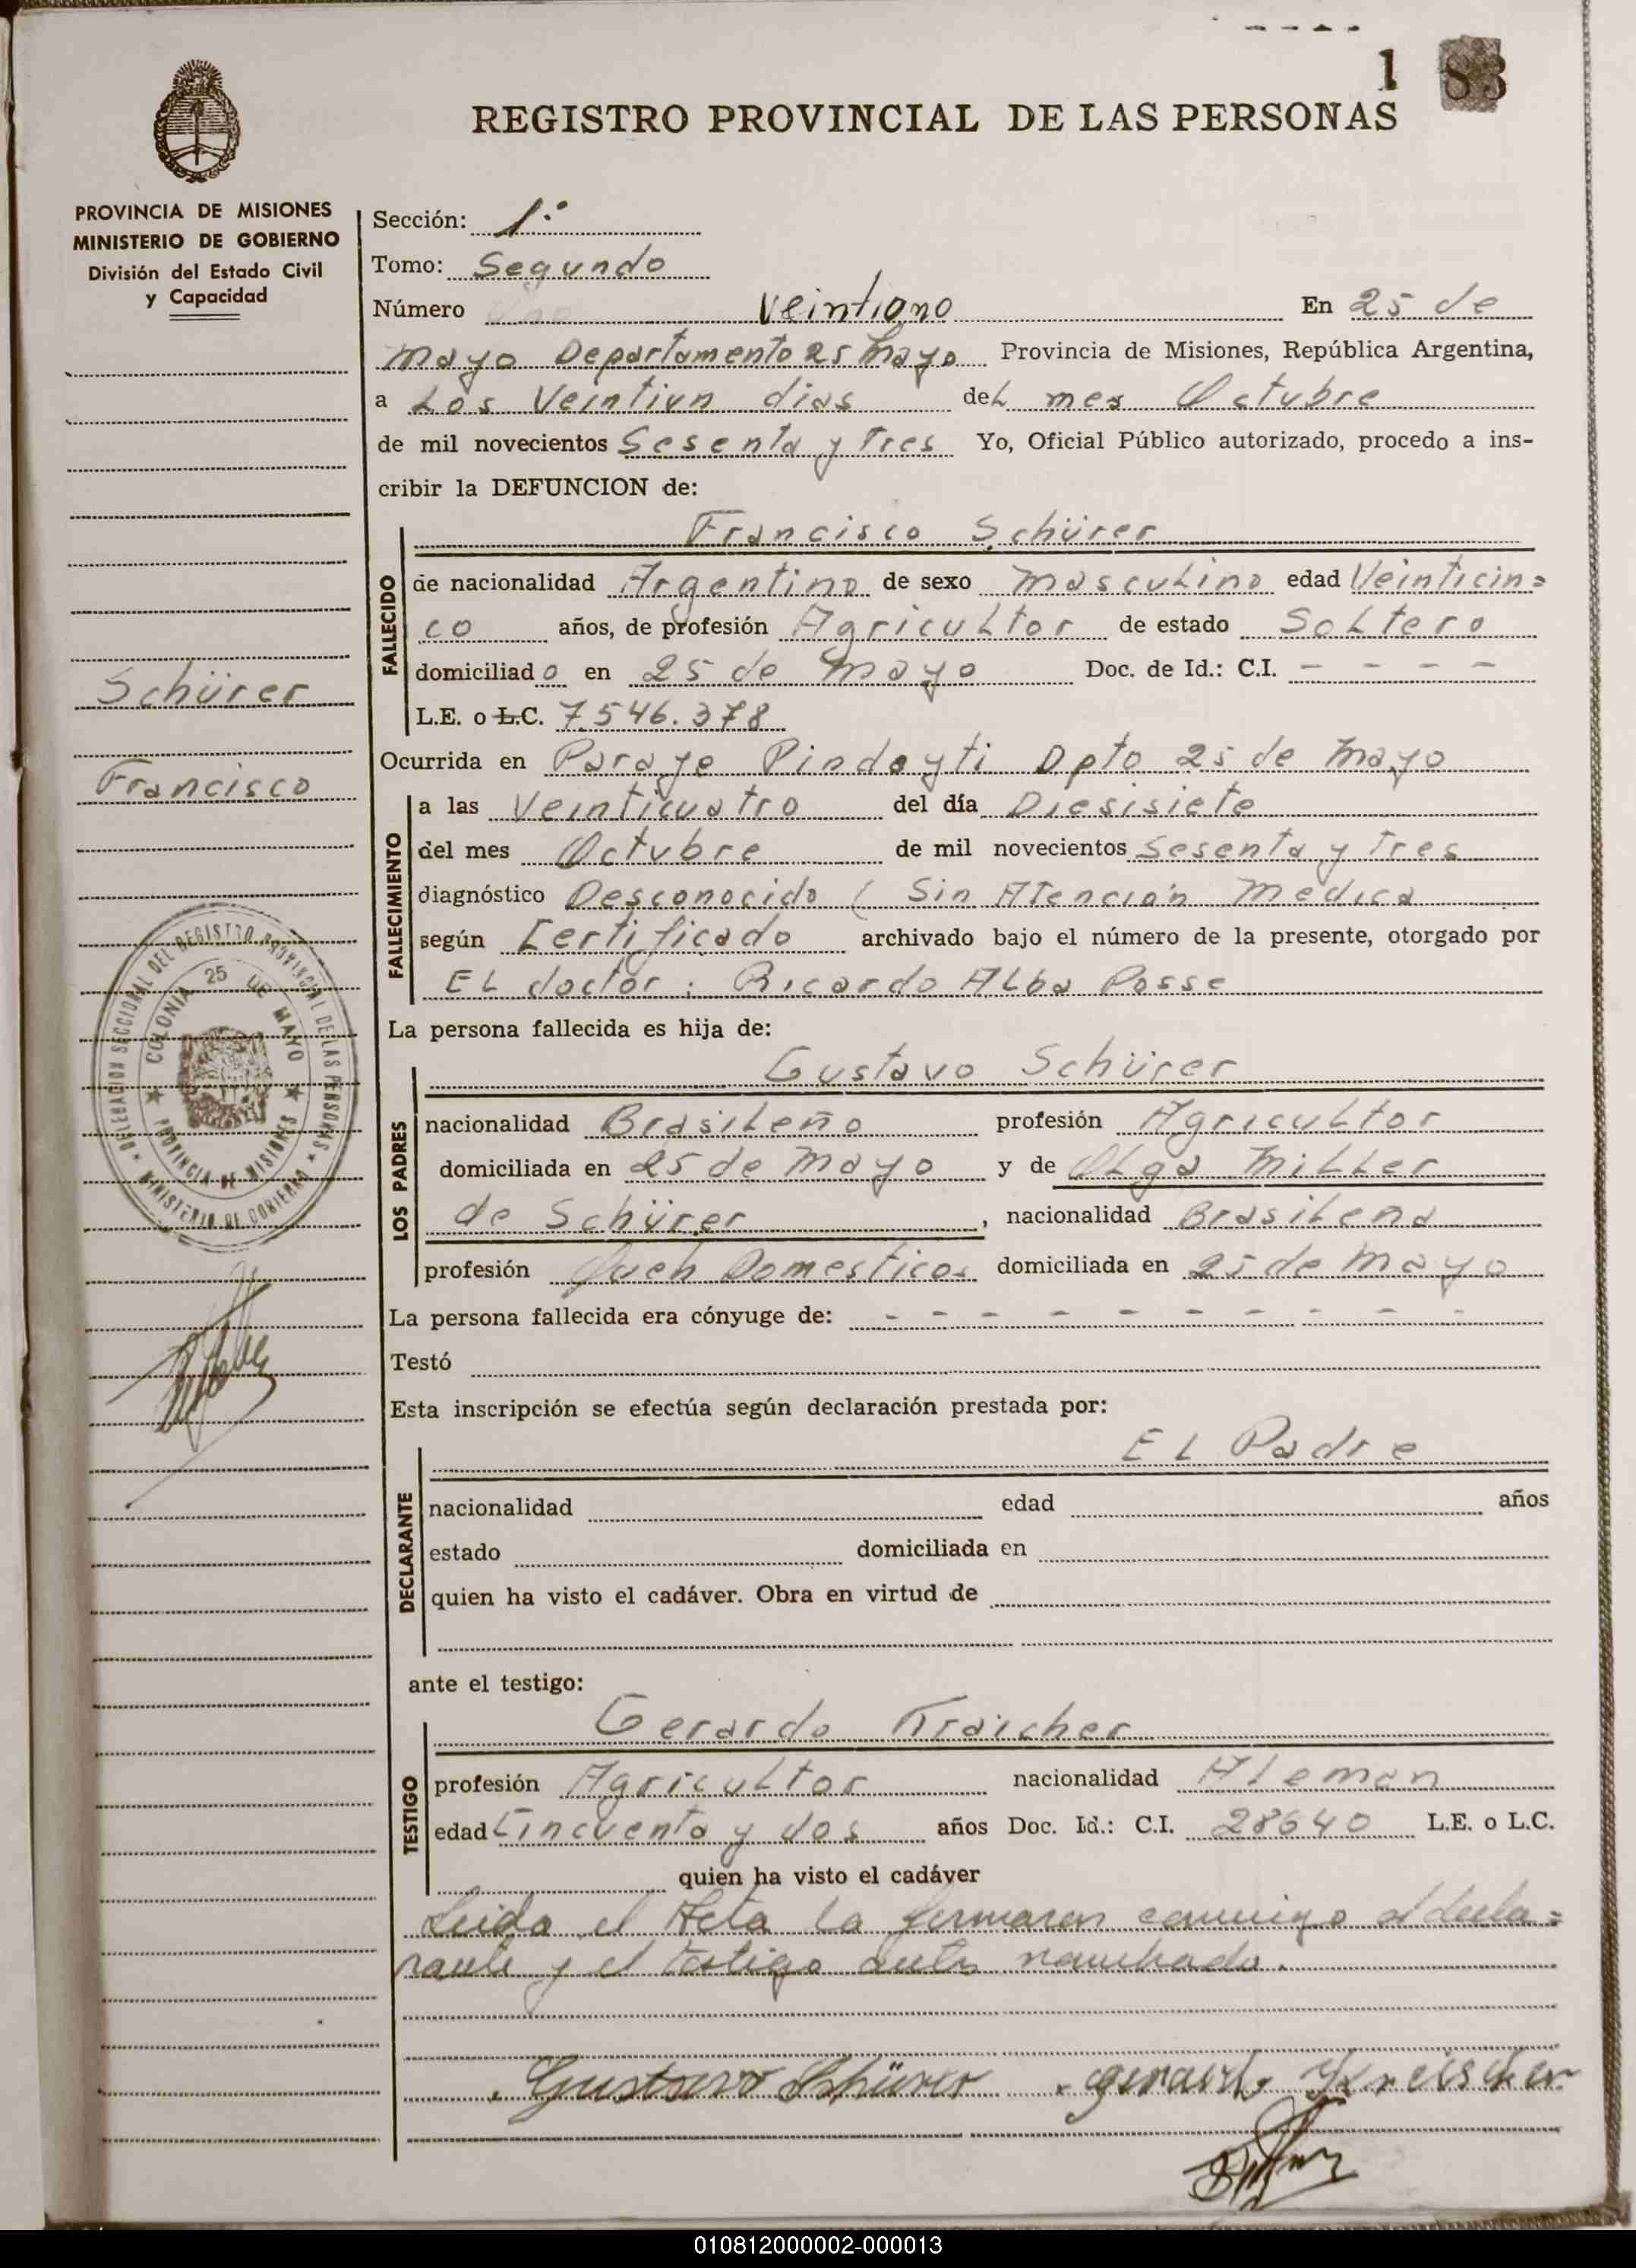 1 83
REGISTRO PROVINCIAL DE LAS PERSONAS
PROVINCIA DE MISIONES
MINISTERIO DE GOBIERNO
División del Estado Civil
y Capacidad
Schürer
Francisco
DELEGACION SECCIONAL DEL REGISTRO PROVINCIAL DE LAS PERSONAS
★ MINISTERIO DE GOBIERNO ★
COLONIA 25 DE MAYO
★ PROVINCIA DE MISIONES ★
Sección: 1º
Tomo: Segundo
Número Veintiuno En 25 de
Mayo Departamento 25 Mayo Provincia de Misiones, República Argentina,
a Los Veintiun dias del mes Octubre
de mil novecientos Sesenta y Tres Yo, Oficial Público autorizado, procedo a ins-
cribir la DEFUNCION de:
FALLECIDO
Francisco Schürer
de nacionalidad Argentino de sexo Masculino edad Veinticin=
co años, de profesión Agricultor de estado Soltero
domiciliado en 25 de Mayo Doc. de Id.: C.I. - - - -
L.E. o L.C. 7.546.378
Ocurrida en Paraje Pindayti Dpto 25 de Mayo
FALLECIMIENTO
a las Veinticuatro del día Diesisiete
del mes Octubre de mil novecientos Sesenta y Tres
diagnóstico Desconocido ( Sin Atención Medica
según Certificado archivado bajo el número de la presente, otorgado por
EL doctor: Ricardo Alba Posse
La persona fallecida es hija de:
LOS PADRES
Gustavo Schürer
nacionalidad Brasileño profesión Agricultor
domiciliada en 25 de Mayo y de Olga Miller
de Schürer, nacionalidad Brasilena
profesión Queh Domesticos domiciliada en 25 de Mayo
La persona fallecida era cónyuge de: - - - - - - - - - -
Testó
Esta inscripción se efectúa según declaración prestada por:
DECLARANTE
EL Padre
nacionalidad edad años
estado domiciliada en
quien ha visto el cadáver. Obra en virtud de
ante el testigo:
TESTIGO
Gerardo Kraicher
profesión Agricultor nacionalidad Aleman
edad Cincuenta y dos años Doc. Id.: C.I. 28640 L.E. o L.C.
quien ha visto el cadáver
Leida el Acta la firmaron conmigo el decla=
rante y el testigo antes nombrado.
Gustavo Schürer Gerardo Kreischer
010812000002-000013